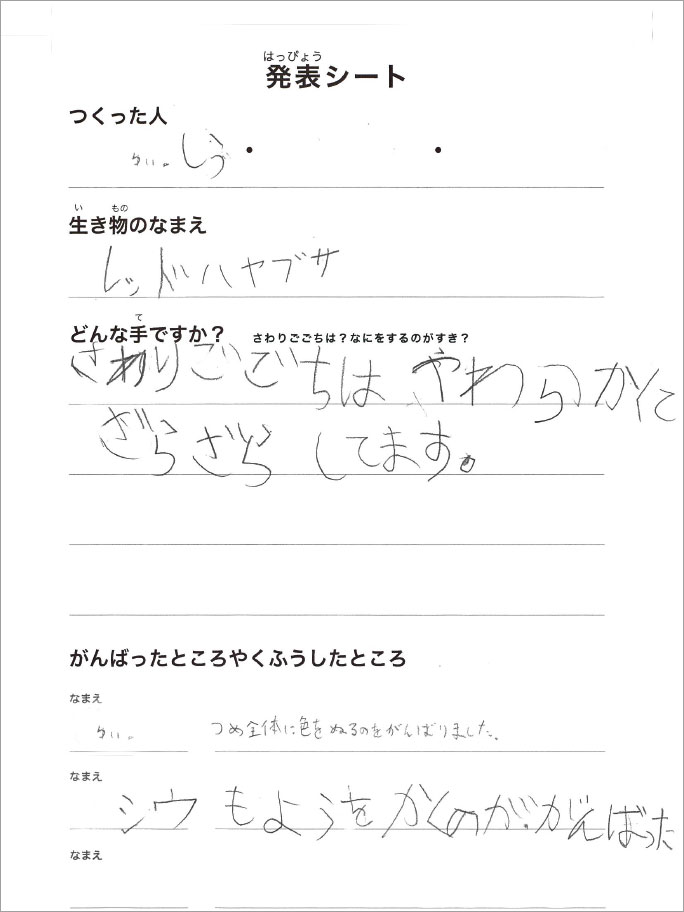 はっぴょう
発表シート
つくった人
けい。 しう ・ ・
い もの
生き物のなまえ
レッドハヤブサ
て
どんな手ですか? さわりごごちは?なにをするのがすき?
さわりごごちは やわらかくに
ざらざら してます。
がんばったところやくふうしたところ
なまえ
けい。 つめ全体に色をぬるのをがんばりました。
なまえ
シウ もようをかくのが、がんばった
なまえ